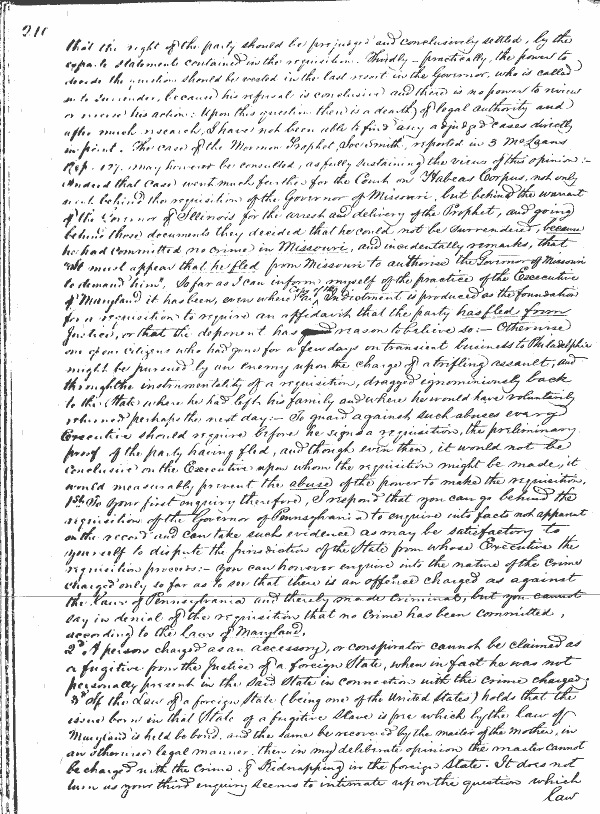 210
that the right of the party should be prejudged and conclusively settled, by the
exparte statements contained in the requisition. Thirdly – practically, the power to
decide the question should be vested in the last resort in the Governor, who is called
on to surrender, because his refusal is conclusive and there is no power to review
or reverse his action: Upon this question there is a dearth of legal authority and
after much research, I have not been able to find any adjudged cases directly
in point. The case of the Mormon Prophet, Joe Smith, reported in 3 McLeans
Rep. may however be consulted, as fully sustaining the views of this opinion:–
Indeed that case went much farther for the Court on Habeas Corpus, not only
went behind the requisition of the Governor of Missouri, but behind the warrant
of the Governor of Illinois for the arrest and delivery of the Prophet, and going
behind those documents they decided that he could not be surrendered, because
he had committed no crime in Missouri, and incidentally remarks, that
"it must appear that he fled from Missouri to authorise the Governor of Missouri
to demand him". So far as I can inform myself of the practice of the Executive
of Maryland it has been, even where copy of the Indictment is produced as the foundation
for a requisition to require an affidavit that the party has fled from
Justice, or that the deponent has reason to believe so:– Otherwise
one of our citizens who had gone for a few days on transient business to Philadelphia
might be pursued by an enemy upon the charge of a trifling assault, and
through the instrumentality of a requisition, dragged ignominiously back
to the State where he had left his family and where he would have voluntarily
returned perhaps the next day.– To guard against such abuses every
Executive should require before he signs a requisition, the preliminary
proof of the party having fled, and though even then, it would not be
conclusive on the Executive upon whom the requisition might be made, it
would measurably prevent the abuse of the power to make the requisition,
1st To your first enquiry therefore, I respond that you can go behind the
requisition of the Governor of Pennsylvania to enquire into facts not apparent
on the record and can take such evidence as may be satisfactory to
yourself to dispute the Jurisdiction of the State from whose Executive the
requisition proceeds:– you can however enquire into the nature of the Crime
charged only so far as to see that there is an offence charged as against
the laws of Pennsylvania and thereby made criminal, but you cannot
say in denial of the requisition that no Crime has been committed,
according to the laws of Maryland.
2d A persons charged as an accessory, or conspirator cannot be claimed as
a fugitive from the Justice of a foreign State, when in fact he was not
personally present in the said State in connection with the crime charged;
3d If the Law of a foreign State (being one of the United States) holds that the
issue born in that State of a fugitive Slave is free which by the law of
Maryland is held be bond, and the same be recovered by the master of the mother, in
an otherwise legal manner, then in my deliberate opinion the master cannot
be charged with the crime of Kidnapping in the foreign State. It does not
seem as your third enquiry seems to intimate upon the question which
law